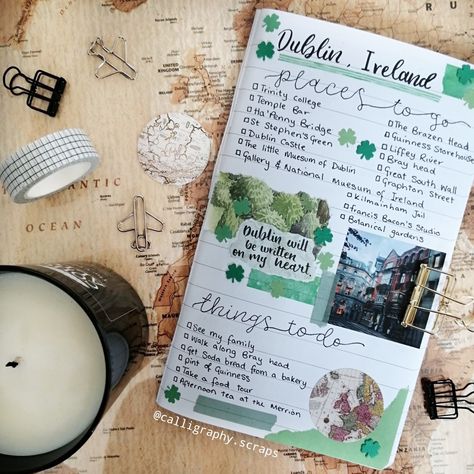 Dublin, Ireland
places to go
Trinity College
Temple Bar
Ha'Penny Bridge
St Stephen's Green
Dublin Castle
The little Museum of Dublin
Gallery & National Museum of Ireland
The Brazen Head
Guinness Storehouse
Liffey River
Bray head
Great South Wall
Graphton Street
Kilmainham Jail
Francis Bacon's Studio
Botanical gardens
Dublin will
be written
on my heart.
things to do
See my family
Walk along Bray head
Get Soda bread from a bakery
pint of Guinness
Take a food Tour
Afternoon tea at the Merrion
@calligraphy.scraps
ATLANTIC
OCEAN